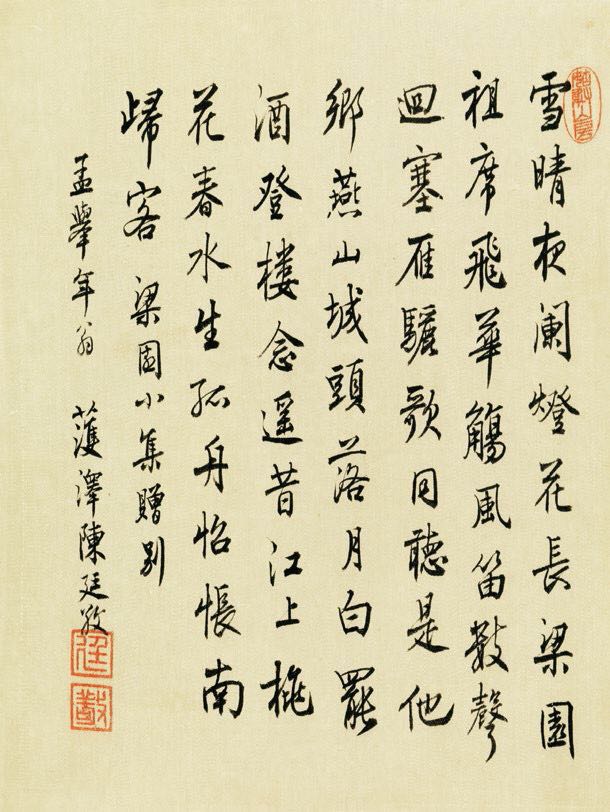 雪晴夜闌燈花長梁園
祖席飛華觴風笛數聲
迴塞雁驪歌同聽是他
鄉燕山城頭落月白罷
酒登樓念遥昔江上桃
花春水生孤舟怊悵南
歸客 梁園小集贈別
孟舉年翁 濩澤陳廷敬
廷敬